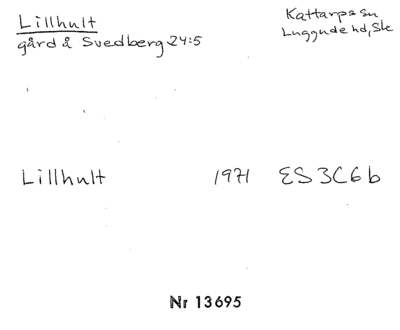 Lillhult
gård å Svedberg 24:5
Kattarps sn
Luggude hd, Sk
Lillhult 1971 ES3C6b
Nr 13695